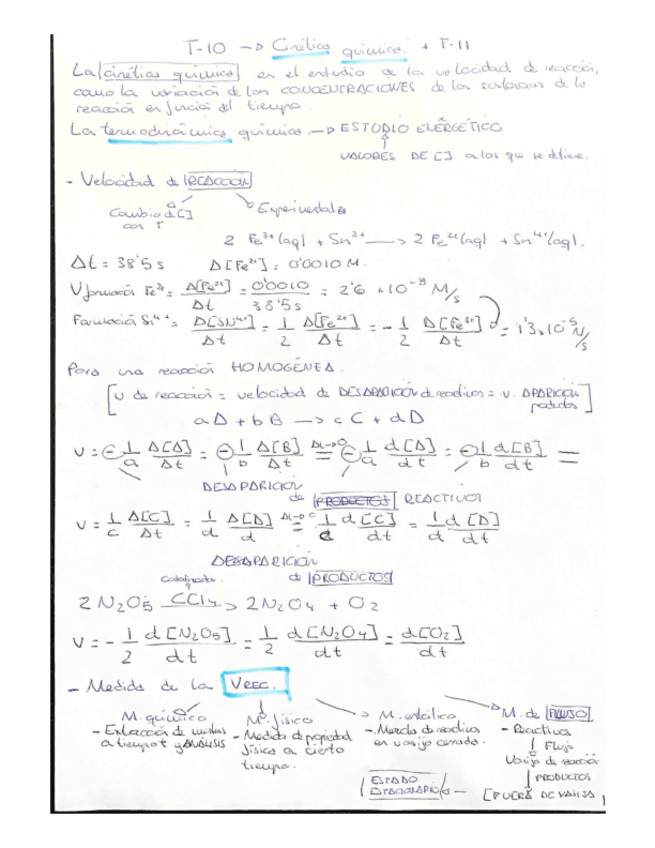 T-10 → Cinética química + T-11
La cinética química es el estudio de la velocidad de reacción,
como la variación de las CONCENTRACIONES de las sustancias de la
reacción en función del tiempo.
La termodinámica química → ESTUDIO ENERGÉTICO
VALORES DE [] a los que se detiene.
- Velocidad de REACCIÓN
Cambio de [] con T
Experimentales
2 Fe³⁺(aq) + Sn²⁺ → 2 Fe²⁺(aq) + Sn⁴⁺(aq).
Δt = 38'5 s Δ[Fe²⁺] = 0'0010 M.
V formación Fe²⁺ = Δ[Fe²⁺]/Δt = 0'0010/38'5 s = 2'6 × 10⁻⁵ M/s
Formación Sn⁴⁺ = Δ[Sn⁴⁺]/Δt = 1/2 Δ[Fe²⁺]/Δt = - 1/2 Δ[Fe³⁺]/Δt = 1'3 × 10⁻⁵ M/s
Para una reacción HOMOGÉNEA.
[v. de reacción = velocidad de DESAPARICIÓN de reactivos = v. APARICIÓN productos]
aA + bB → cC + dD
V = - 1/a Δ[A]/Δt = - 1/b Δ[B]/Δt = Δt→0 - 1/a d[A]/dt = - 1/b d[B]/dt =
DESAPARICIÓN
de PRODUCTOS REACTIVOS
V = 1/c Δ[C]/Δt = 1/d Δ[D]/d = Δt→0 1/c d[C]/dt = 1/d d[D]/dt
DESAPARICIÓN
de PRODUCTOS
catalizador
2 N₂O₅ CCl₄→ 2 N₂O₄ + O₂
V = - 1/2 d[N₂O₅]/dt = 1/2 d[N₂O₄]/dt = d[O₂]/dt
- Medida de la VREC.
M. químico M. físico M. estático M. de FLUJO
- Extracción de muestras a tiempo t y ANÁLISIS
- Medida de propiedad física a cierto tiempo.
- Mezcla de reactivos en vasija cerrada.
- Reactivos
Flujo
Vasija de reacción
PRODUCTOS
[FUERA DE VASIJA]
ESTADO ESTACIONARIO